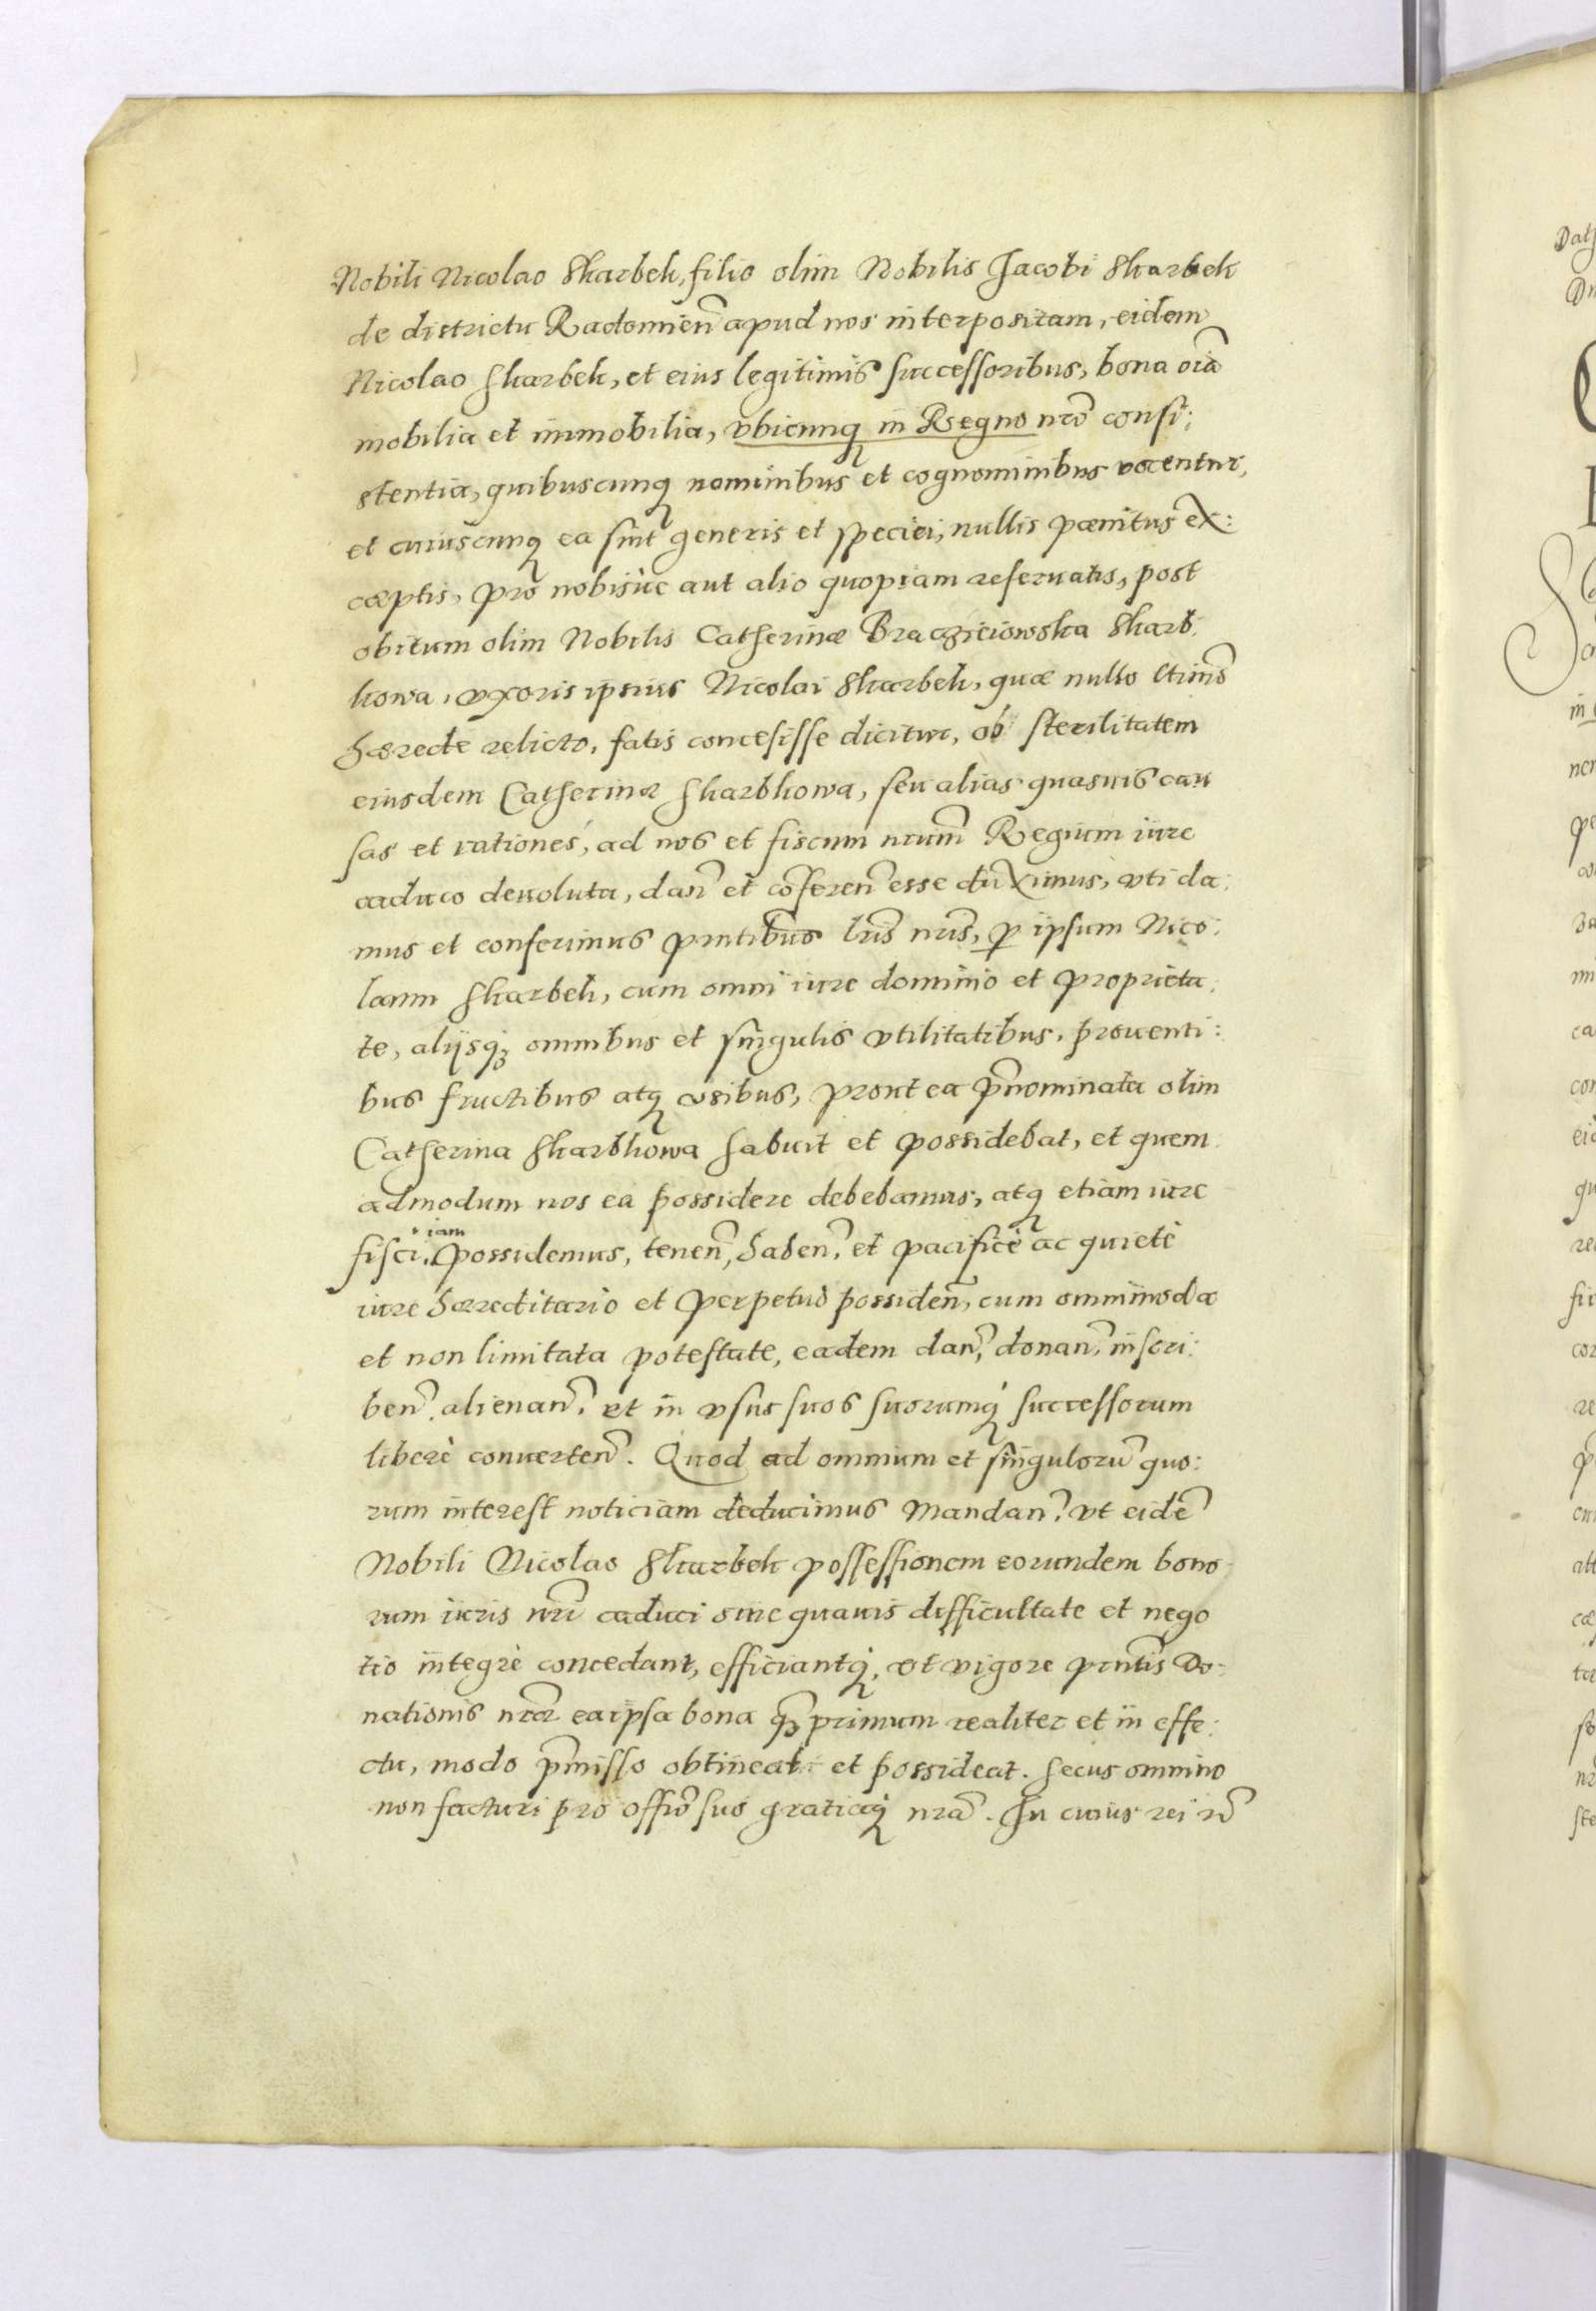 Nobili Nicolao Skarbek, filio olim Nobilis Jacobi Skarbek
de districtu Radomien̄ apud nos interpositam, eidem
Nicolao Skarbek, et eius legitimis successoribus, bona oīa
mobilia et immobilia, vbicunq̨ in Regno nr̄o consi:
stentia, quibuscunq̨ nominibus et cognominibus vocentur,
et cuiuscunq̨ ea sint generis et speciei, nullis pœnitus ex:
cæptis, pro nobisue aut alio quopiam reseruatis, post
obitum olim Nobilis Catherinæ Braczieiowska Skarb,
kowa, vxoris ipsius Nicolai Skarbek, quæ nullo ltimō
hærede relicto, fatis concesisse dicitur, ob sterilitatem
eiusdem Catherinæ Skarbkowa, seu alias quasuis cau
sas et rationes, ad nos et fiscum nr̄um Regium iure
caduco deuoluta, dan̄ et cōferen̄ esse duximus, vti da:
mus et conferimus pn̄tibus lr̄is nr̄is, ꝑ ipsum Nico:
laum Skarbek, cum omni iure dominio et proprieta:
te, alijsq̨ omnibus et singulis vtilitatibus, prouenti:
bus fructibus atq̨ cēsibus, prout ea p̄nominata olim
Catherina Skarbkowa habuit et possidebat, et quem
admodum nos ea possidere debebamus, atq̨ etiam iure
fisci iam possidemus, tenen̄, haben̄, et pacificè ac quietè
iure hæreditario et perpetuò possiden̄, cum omnimoda
et non limitata potestate, eadem dan̄, donan̄, inscri:
ben̄, alienan̄, et in vsus suos suorumq̨ successorum
liberè conuerten̄. Quod ad omnium et singulorū quo:
rum interest noticiam deducimus Mandan̄, vt eidē
Nobili Nicolao Skarbek possessionem eorundem bono
rum iuris nr̄i caduci sine quauis difficultate et nego
tio integrè concedant, efficiantq̨, vt vigore pn̄tis Do:
nationis nr̄æ ea ipsa bona q̄ primum realiter et in effe:
ctu, modo p̄misso obtineat et possideat. Secus omnino
non facturi pro offīo suo gratiaq̨ nr̄a. In cuius rei